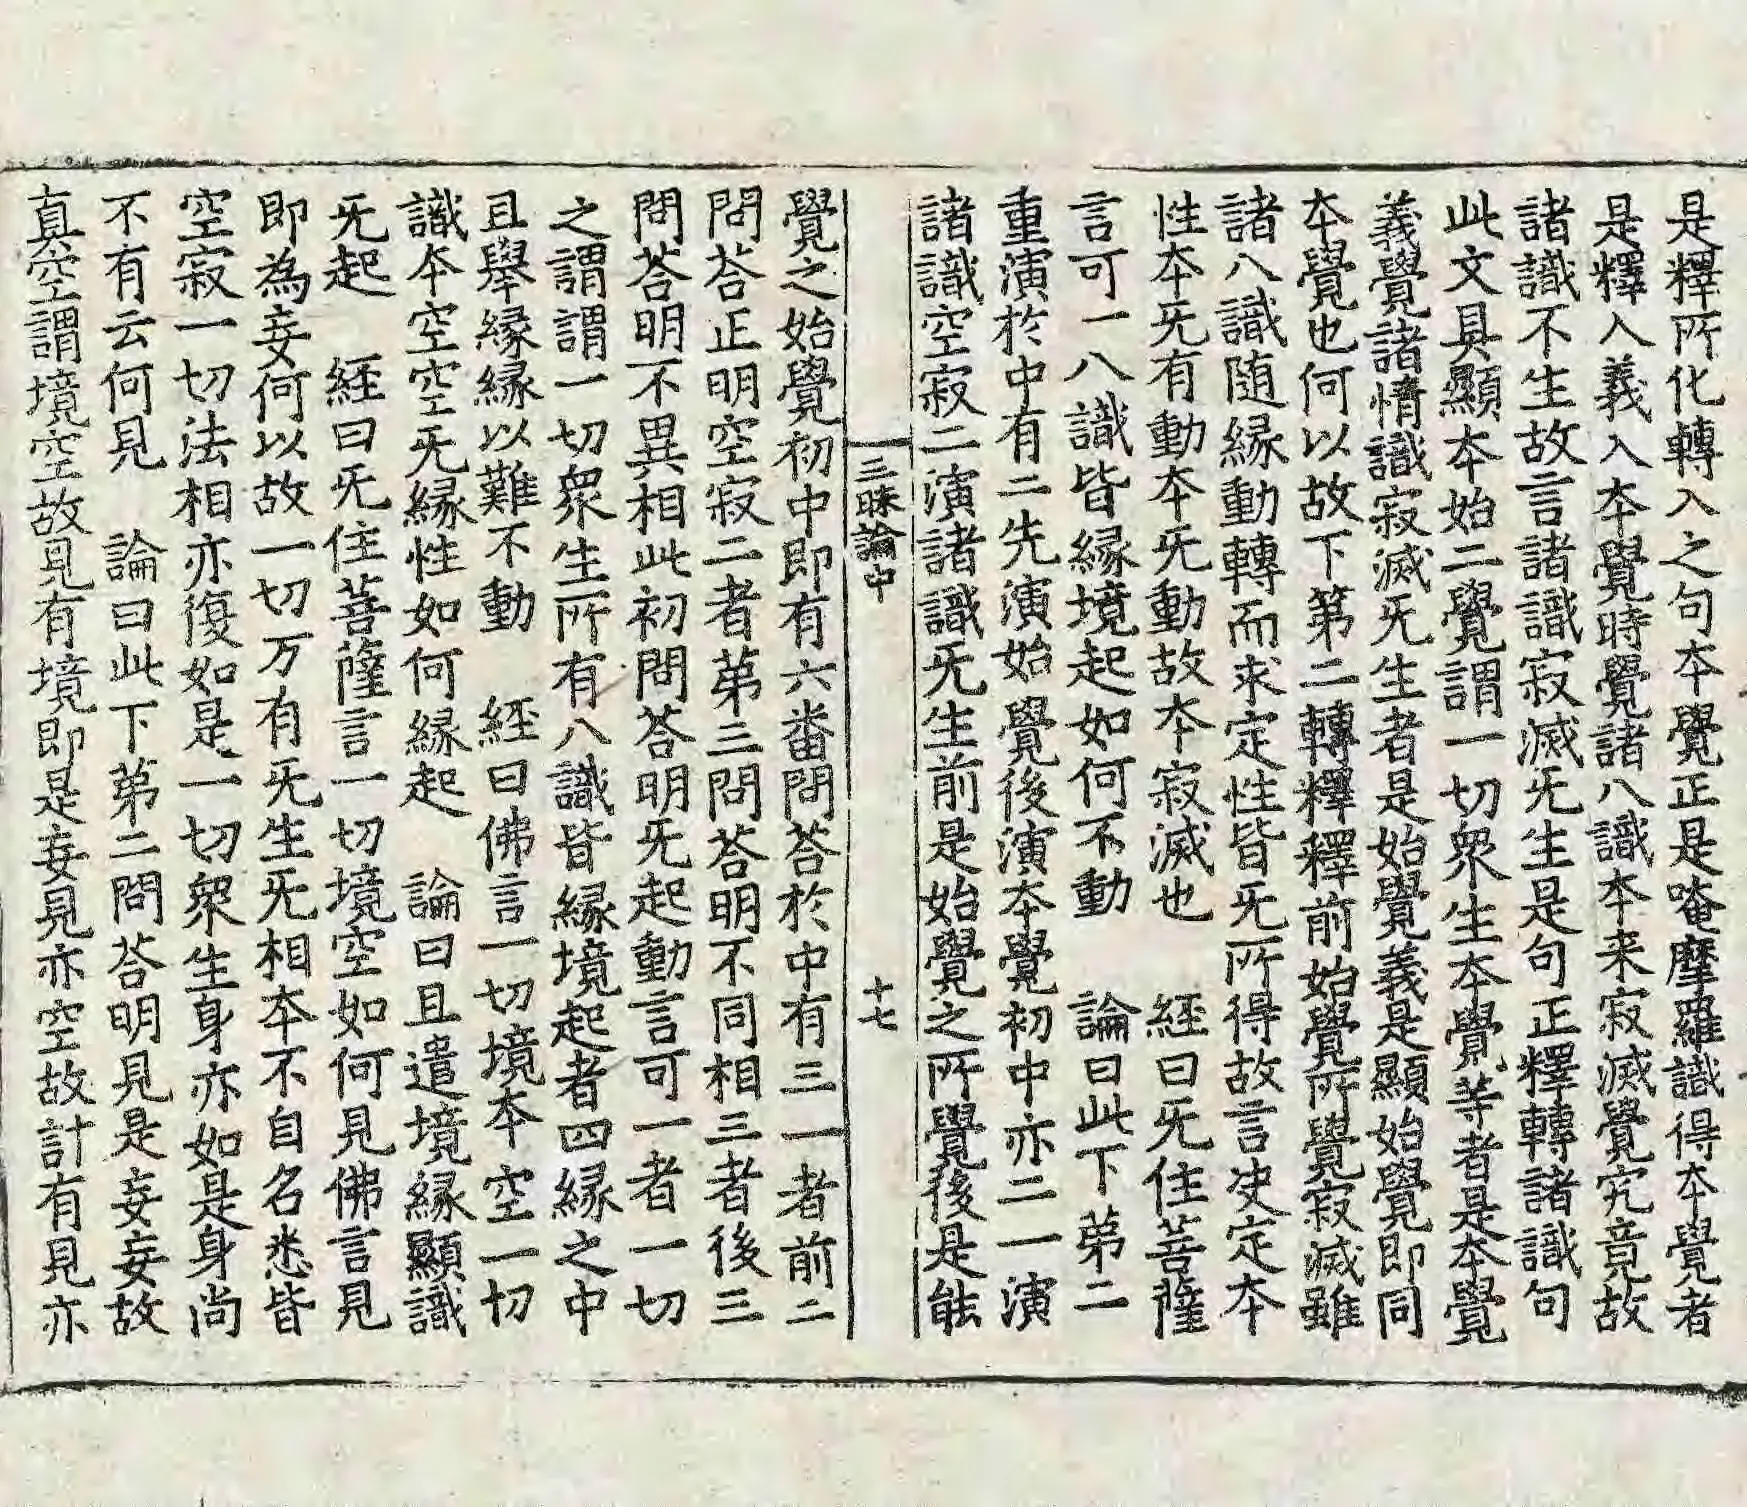 是釋所化轉入之句本覺正是唵摩羅識得本覺者
是釋入義入本覺時覺諸八識本来寂滅覺究竟故
諸識不生故言諸識寂滅旡生是句正釋轉諸識句
此文具顯本始二覺謂一切衆生本覺等者是本覺
義覺諸情識寂滅旡生者是始覺義是顯始覺即同
本覺也何以故下第二轉釋釋前始覺所覺寂滅雖
諸八識随縁動轉而求定性皆旡所得故言决定本
性本旡有動本旡動故本寂滅也　経曰旡住菩薩
言可一八識皆縁境起如何不動　論曰此下第二
重演於中有二先演始覺後演本覺初中亦二一演
諸識空寂二演諸識旡生前是始覺之所覺後是能
三昧論中　十七
覺之始覺初中即有六番問荅於中有三一者前二
問荅正明空寂二者第三問荅明不同相三者後三
問荅明不異相此初問荅明旡起動言可一者一切
之謂謂一切衆生所有八識皆縁境起者四縁之中
且舉縁縁以難不動　経曰佛言一切境本空一切
識本空空旡縁性如何縁起　論曰且遣境縁顯識
旡起　経曰旡住菩薩言一切境空如何見佛言見
即為妄何以故一切万有旡生旡相本不自名悉皆
空寂一切法相亦復如是一切衆生身亦如是身尚
不有云何見　論曰此下第二問荅明見是妄妄故
真空謂境空故見有境即是妄見亦空故計有見亦